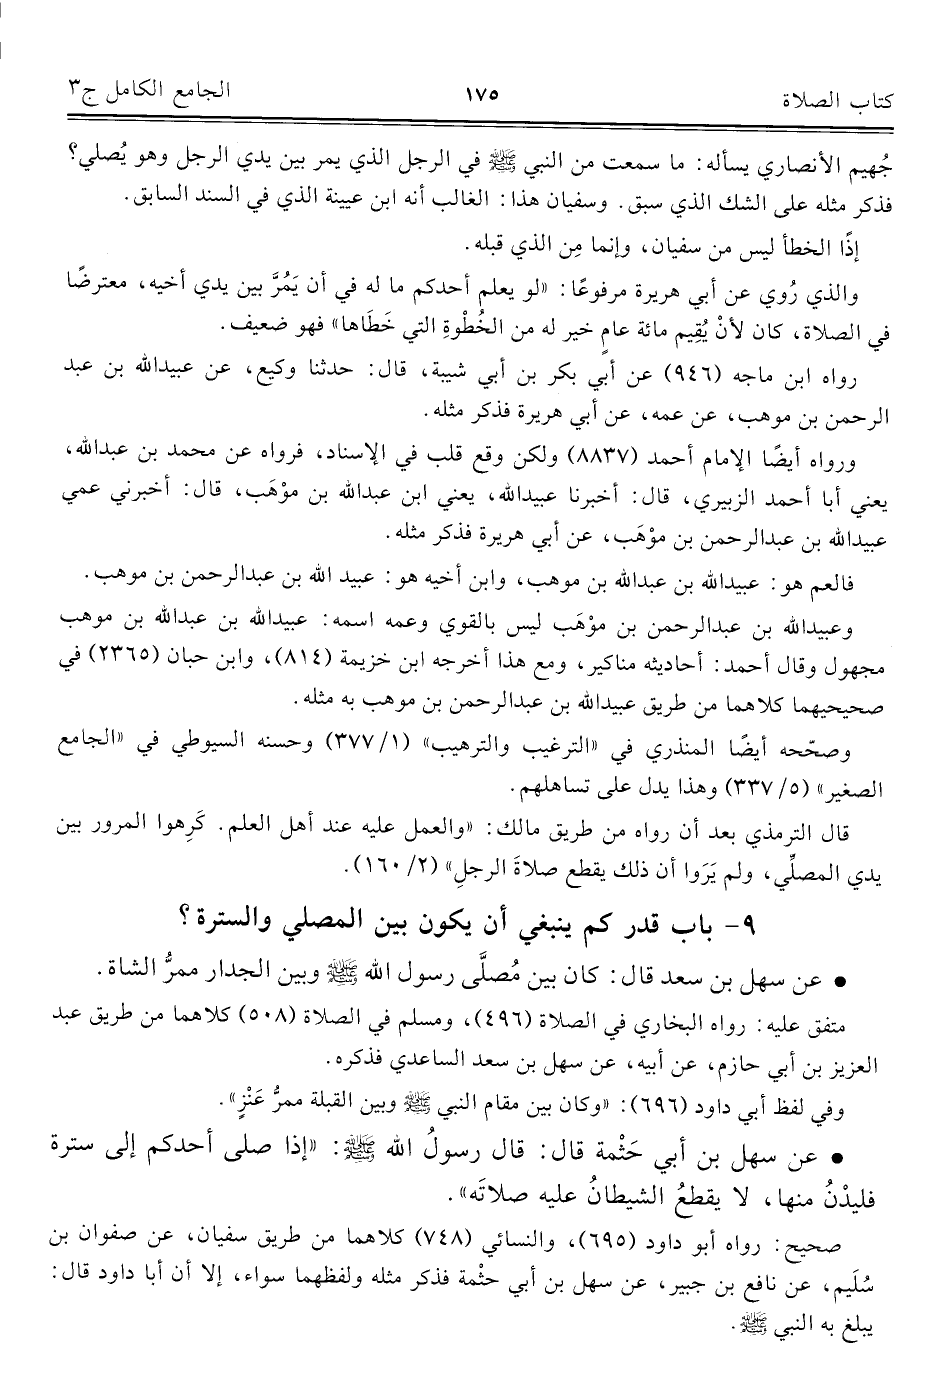 كتاب الصلاة ١٧٥ الجامع الكامل ج٣
جُهيم الأنصاري يسأله: ما سمعت من النبي ﷺ في الرجل الذي يمر بين يدي الرجل وهو يُصلي؟
فذكر مثله على الشك الذي سبق. وسفيان هذا: الغالب أنه ابن عيينة الذي في السند السابق.
إذًا الخطأ ليس من سفيان، وإنما مِن الذي قبله.
والذي رُوي عن أبي هريرة مرفوعًا: «لو يعلم أحدكم ما له في أن يَمُرَّ بين يدي أخيه، معترضًا
في الصلاة، كان لأنْ يُقِيم مائة عامٍ خير له من الخُطْوةِ التي خَطَاها» فهو ضعيف.
رواه ابن ماجه (٩٤٦) عن أبي بكر بن أبي شيبة، قال: حدثنا وكيع، عن عبيدالله بن عبد
الرحمن بن موهب، عن عمه، عن أبي هريرة فذكر مثله.
ورواه أيضًا الإمام أحمد (٨٨٣٧) ولكن وقع قلب في الإسناد، فرواه عن محمد بن عبدالله،
يعني أبا أحمد الزبيري، قال: أخبرنا عبيدالله، يعني ابن عبدالله بن موْهَب، قال: أخبرني عمي
عبيدالله بن عبدالرحمن بن موْهَب، عن أبي هريرة فذكر مثله.
فالعم هو: عبيدالله بن عبدالله بن موهب، وابن أخيه هو: عبيد الله بن عبدالرحمن بن موهب.
وعبيدالله بن عبدالرحمن بن موْهَب ليس بالقوي وعمه اسمه: عبيدالله بن عبدالله بن موهب
مجهول وقال أحمد: أحاديثه مناكير، ومع هذا أخرجه ابن خزيمة (٨١٤)، وابن حبان (٢٣٦٥) في
صحيحيهما كلاهما من طريق عبيدالله بن عبدالرحمن بن موهب به مثله.
وصحّحه أيضًا المنذري في «الترغيب والترهيب» (١/ ٣٧٧) وحسنه السيوطي في «الجامع
الصغير» (٥/ ٣٣٧) وهذا يدل على تساهلهم.
قال الترمذي بعد أن رواه من طريق مالك: «والعمل عليه عند أهل العلم. كَرِهوا المرور بين
يدي المصلِّي، ولم يَرَوا أن ذلك يقطع صلاةَ الرجلِ» (٢/ ١٦٠).
٩- باب قدر كم ينبغي أن يكون بين المصلي والسترة؟
● عن سهل بن سعد قال: كان بين مُصلَّى رسول الله ﷺ وبين الجدار ممرُّ الشاة.
متفق عليه: رواه البخاري في الصلاة (٤٩٦)، ومسلم في الصلاة (٥٠٨) كلاهما من طريق عبد
العزيز بن أبي حازم، عن أبيه، عن سهل بن سعد الساعدي فذكره.
وفي لفظ أبي داود (٦٩٦): «وكان بين مقام النبي ﷺ وبين القبلة ممرُّ عَنْزٍ».
● عن سهل بن أبي حَثْمة قال: قال رسولُ الله ﷺ: «إذا صلى أحدكم إلى سترة
فليدْنُ منها، لا يقطعُ الشيطانُ عليه صلاتَه».
صحيح: رواه أبو داود (٦٩٥)، والنسائي (٧٤٨) كلاهما من طريق سفيان، عن صفوان بن
سُلَيم، عن نافع بن جبير، عن سهل بن أبي حثْمة فذكر مثله ولفظهما سواء، إلا أن أبا داود قال:
يبلغ به النبي ﷺ.